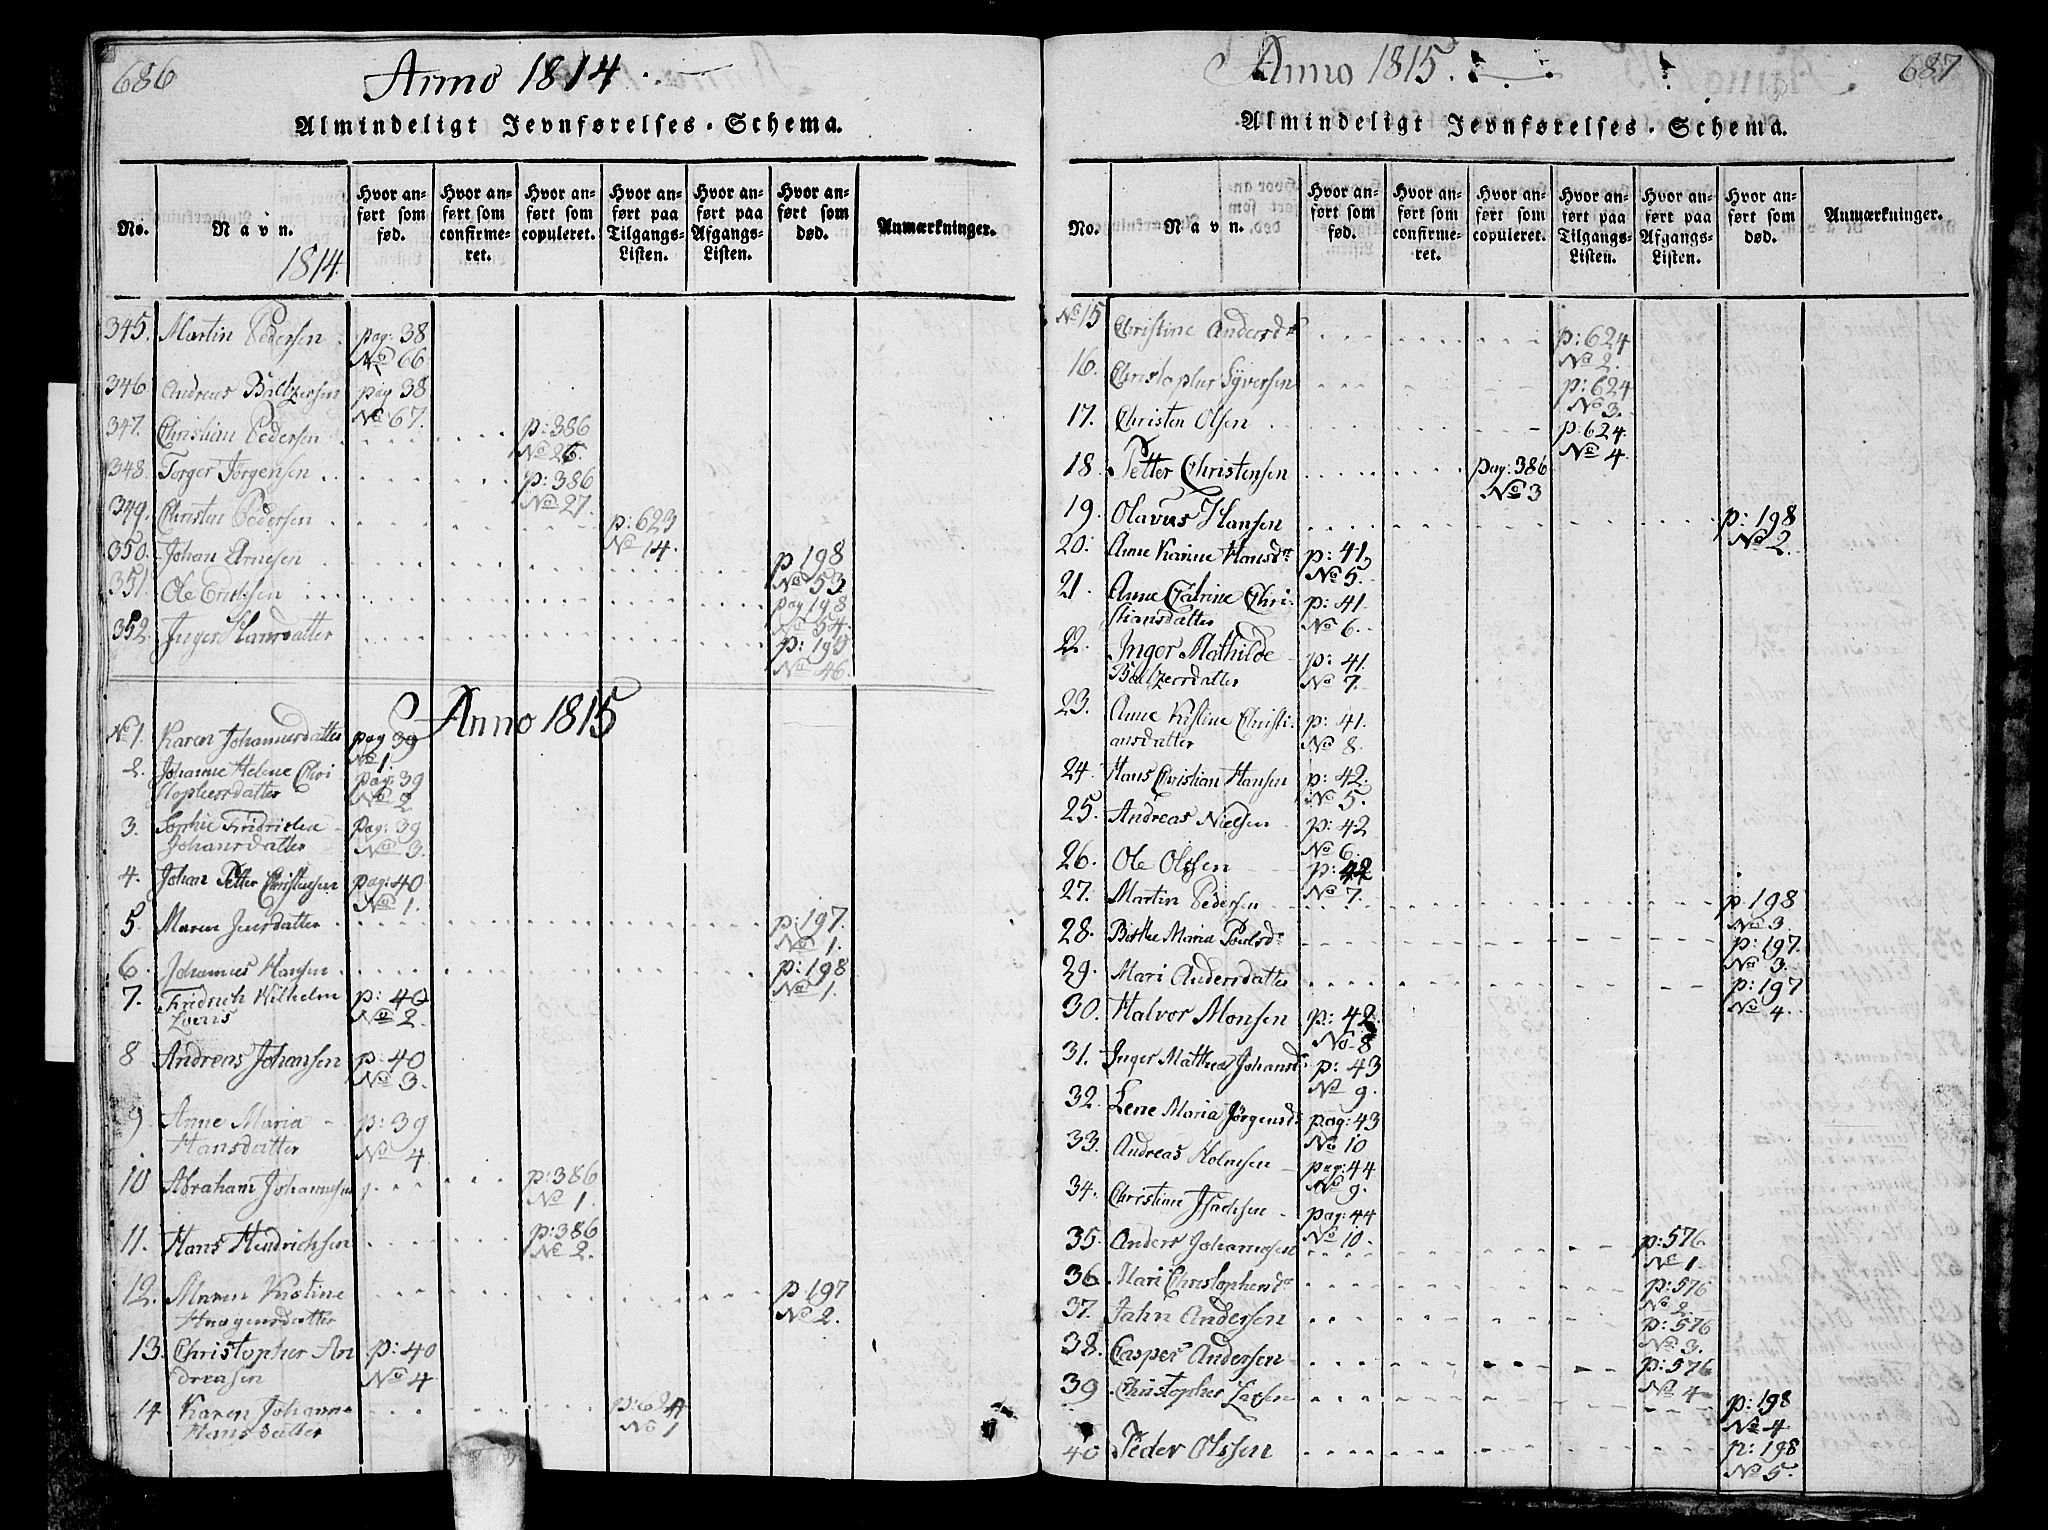 686
Anno 1814.
Almindeligt Jevnførelses-Schema.
No.
Navn.
1814.
Hvor anført som fød.
Hvor anført som confirmeret.
Hvor anført som copuleret.
Hvor anført paa Tilgangs-Listen.
Hvor anført paa Afgangs-Listen.
Hvor anført som død.
Anmærkninger.
345. Martin Pedersen pag: 38
No 66
346 Andreas Baltzersen pag 38
No 67.
347. Christian Pedersen p: 386
No 26.
348. Torger Jørgensen p: 386
No 27.
349. Christen Pedersen p: 623
No 14.
350. Johan Arnesen p 198
No 53
351. Ole Ericksen pag 198
No 54.
352. Inger Hansdatter p: 195
No 46.
Anno 1815
No 1. Karen Johannesdatter pag 39
No 1.
2. Johanne Helene Chri pag: 39
stophersdatter No 2
3. Sophie Fridricka pag: 39
Johansdatter No 3.
4. Johan Petter Christensen pag: 40
No 1.
5. Maren Jensdatter p: 197.
No 1.
6. Johannes Hansen p: 198
No 1.
7. Fridrich Wilhelm p: 40
No 2.
8 Andreas Johansen p: 40
No 3.
9 Anne Maria p: 39
Hansdatter No 4
10 Abraham Johannesen p: 386
No 1.
11. Hans Hendrichsen p: 386
No 2.
12. Maren Kistine p 197
Haagensdatter No 2.
13. Christopher An p: 40
dreasen No 4
14 Karen Johanne p: 624
Hansdatter No 1
687
Anno 1815.
Almindeligt Jevnførelses-Schema.
No.
Navn.
Hvor anført som fød.
Hvor anført som confirmeret.
Hvor anført som copuleret.
Hvor anført paa Tilgangs-Listen.
Hvor anført paa Afgangs-Listen.
Hvor anført som død.
Anmærkninger.
No 15 Christine Andersdtr p: 624
No 2.
16. Christopher Syversen p: 624
No 3.
17. Christen Olsen p: 624.
No 4.
18. Petter Christensen pag: 386
No 3
19. Olavus Hansen p: 198
No 2.
20. Anne Karine Hansdtr p: 41
No 5.
21. Anne Catrine Chri- p: 41
stiansdatter No 6.
22. Inger Mathilde p: 41.
Baltzersdatter No 7.
23. Anne Kistine Christi- p: 41.
ansdatter No 8.
24. Hans Christian Hansen p: 42.
No 5.
25. Andreas Nielsen p: 42
No 6.
26. Ole Olssen p: 42
No 7.
27. Martin Pedersen p 198
No 3.
28. Berthe Maria Poulsdr p: 197.
No 3.
29. Mari Andersdatter p: 197
No 4.
30. Halvor Monsen p: 42.
No 8
31. Inger Mathea Johansdr p: 43
No 9.
32. Lene Maria Jörgensdr pag: 43
No 10
33. Andreas Holmsen pag: 44
No 9.
34. Christiane Isachsen pag: 44
No 10.
35. Anders Johannesen p: 576.
No 1.
36. Mari Christophersdr p: 576
No 2.
37. Jahn Andersen p: 576
No 3.
38. Casper Andersen p: 576
No 4
39. Christopher Larsen p: 198
No 4
40 Peder Olssen p: 198
No 5.